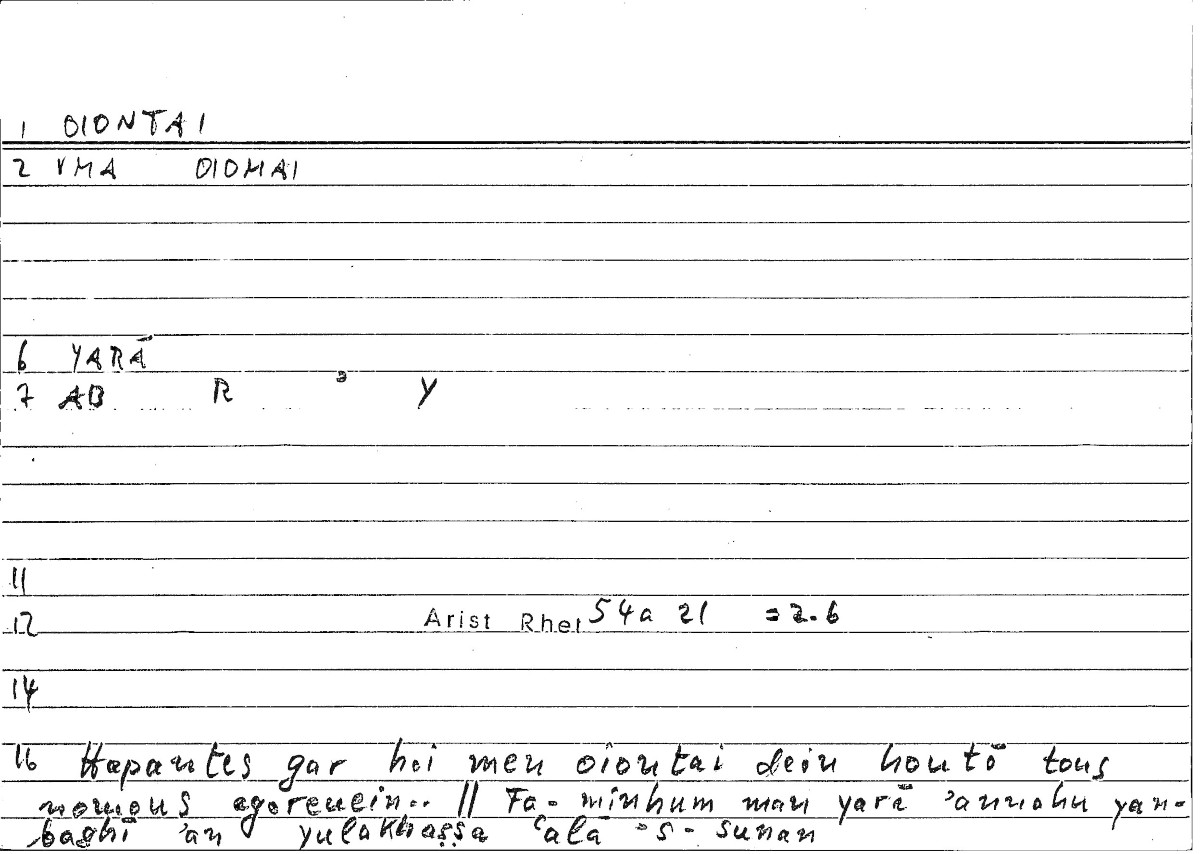 1 OIONTAI
2 VMA OIOMAI
6 YARĀ
7 AB R ʾ Y
11
12 Arist Rhet 54a 21 = 2.6
14
16 Hapantes gar hoi men oiontai dein houtō tous
nomous agoreuein.. || Fa-minhum man yarā ʾannahu yan-
baghī ʾan yulakhaṣṣa ʿalā ʾs-sunan